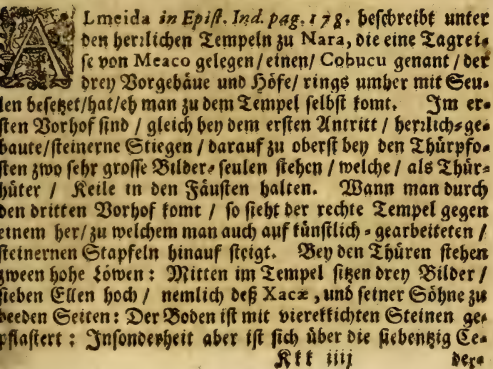 ALmeida in Epist. Ind. pag. 178. beschreibt unter
den herzlichen Tempeln zu Nara, die eine Tagrei-
se von Meaco gelegen/einen/ Cobucu genant/der
drey Vorgebäue und Höfe/rings umher mit Seu-
len besetzet/hat/eh man zu dem Tempel selbst komt. Jm er-
sten Vorhof sind / gleich bey dem ersten Antritt / herzlich-ge-
baute/steinerne Stiegen / darauf zu oberst bey den Thürpfo-
sten zwo sehr grosse Bilder-seulen stehen / welche / als Thür-
hüter / Keile in den Fäusten halten. Wann man durch
den dritten Vorhof komt / so sieht der rechte Tempel gegen
einem her/zu welchem man auch auf künstlich-gearbeiteten /
steinernen Stapfeln hinauf steigt. Bey den Thüren stehen
zween hohe Löwen: Mitten im Tempel sitzen drey Bilder /
sieben Ellen hoch / nemlich deß Xacæ, und seiner Söhne zu
beeden Seiten: Der Boden ist mit viereckichten Steinen ge-
pflastert: Jnsonderheit aber ist sich über die siebentzig Ce-
Kkk iiij der-